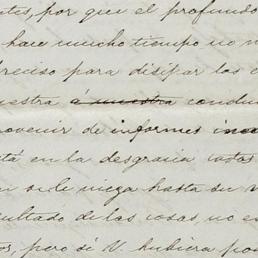 tes, por que el profundo
hace mucho tiempo no
preciso para disipar las
uestra á nuestra condu
rovenir de informes ine
tá en la desgracia
se le niega hasta su
sultado de las cosas, no es
os, pero si V. hubiera po